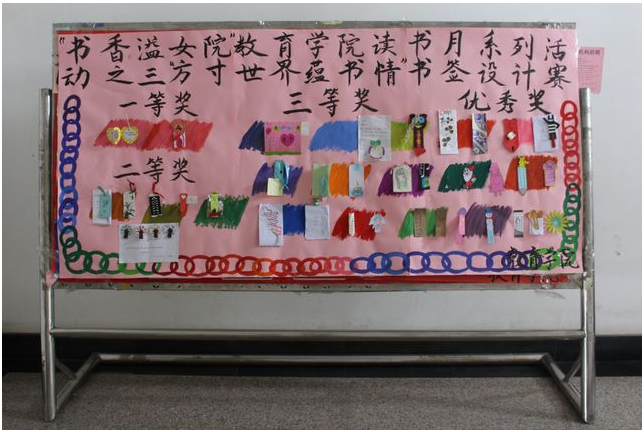 “书香溢女院”教育学院读书月系列活
动之三“方寸世界蕴书情”书签设计赛
一等奖 三等奖 优秀奖
二等奖
教育学院